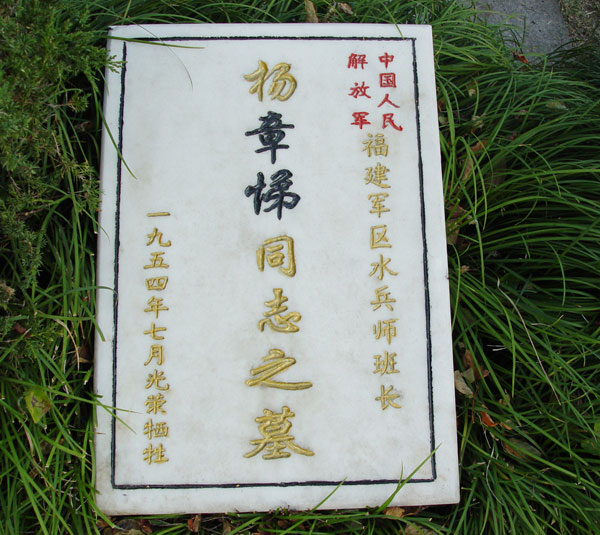 中国人民
解放军
福建军区水兵师班长
杨章悌同志之墓
一九五四年七月光荣牺牲